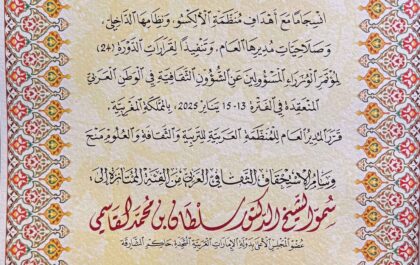 انسجامًا مع أهداف منظمة الألكسو ونظامها الداخلي،
وصلاحيات مديرها العام، وتنفيذًا لقرارات الدورة (24)
لمؤتمر الوزراء المسؤولين عن الشؤون الثقافية في الوطن العربي
المنعقدة في الفترة 13-15 يناير 2025، بالمملكة المغربية،
قرر المدير العام للمنظمة العربية للتربية والثقافة والعلوم منح
وسام الاستحقاق الثقافي العربي من الفئة الممتازة إلى:
سمو الشيخ الدكتور سلطان بن محمد القاسمي
عضو المجلس الأعلى بدولة الإمارات العربية المتحدة، حاكم الشارقة